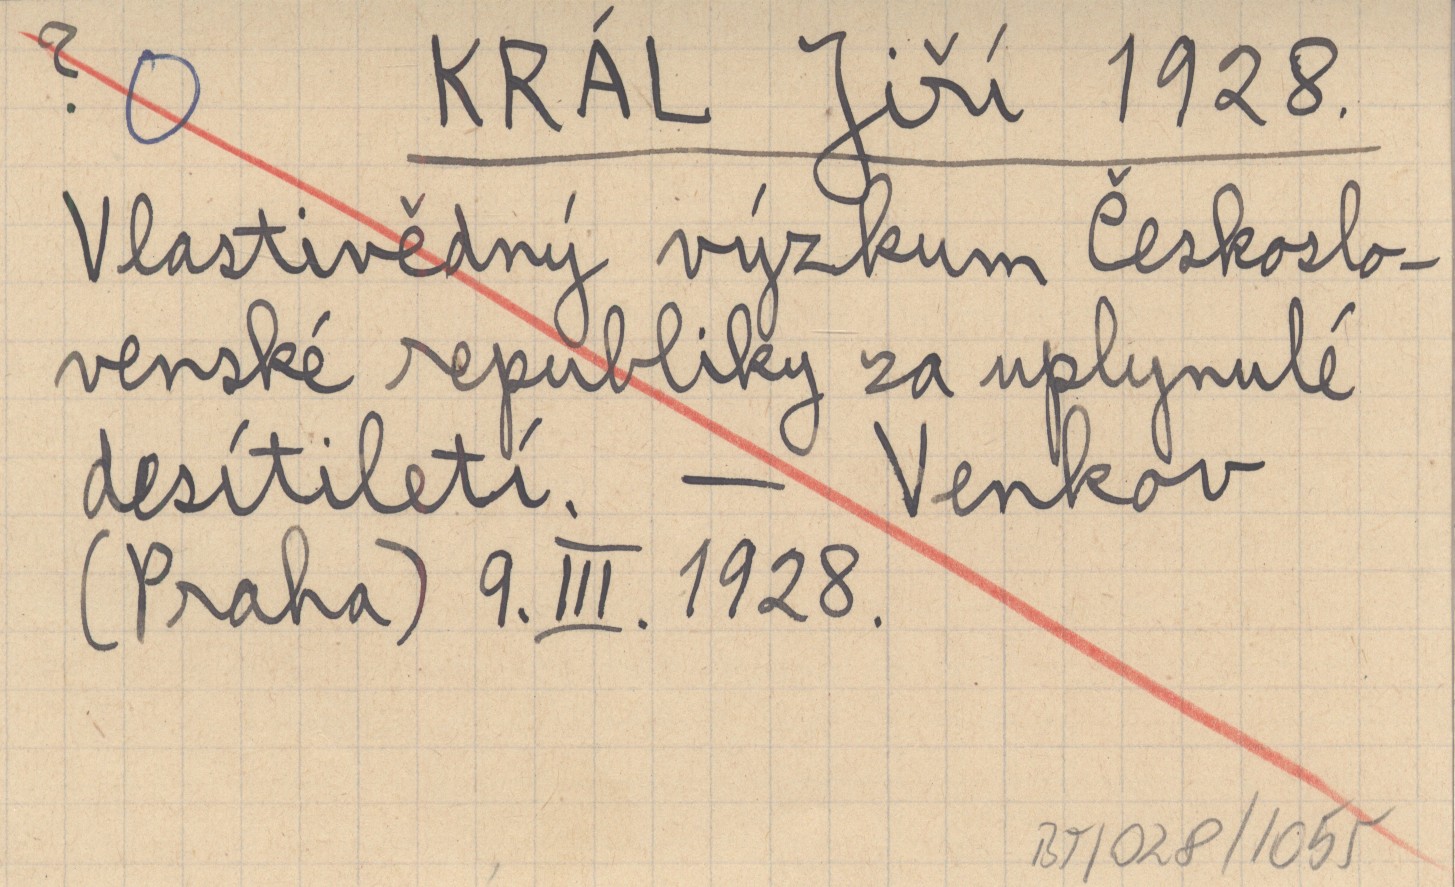 ? O KRÁL Jiří 1928.
Vlastivědný výzkum Českoslo-
venské republiky za uplynulé
desítiletí. — Venkov
(Praha) 9. III. 1928.
BT/028/1055